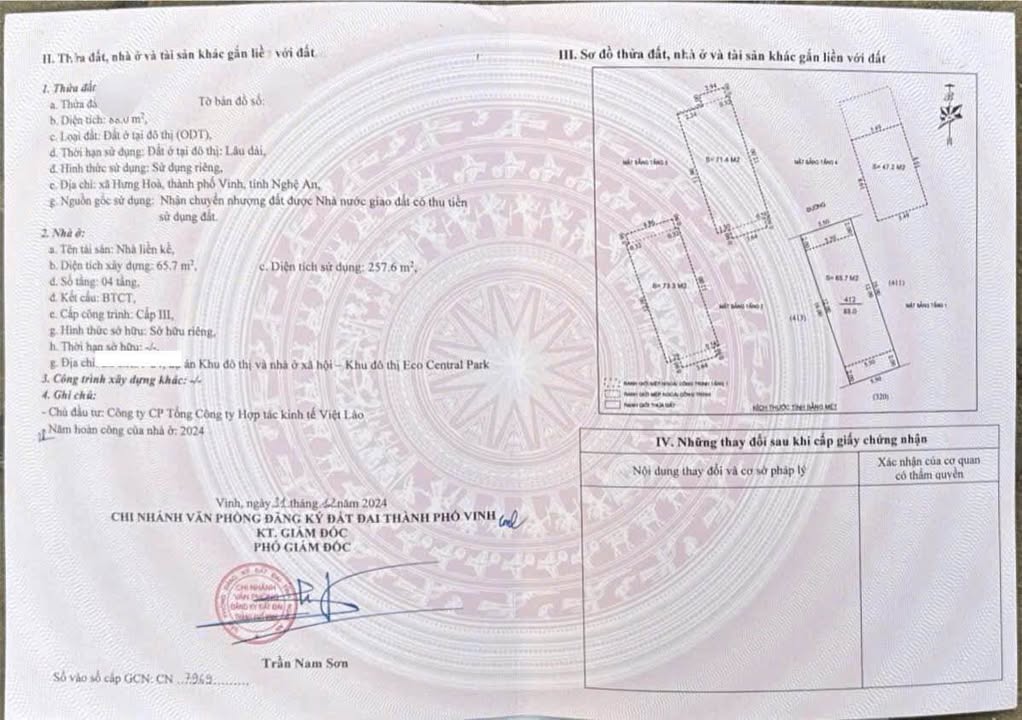 II. Thửa đất, nhà ở và tài sản khác gắn liề với đất
1. Thửa đất
a. Thửa đấ
Tờ bản đồ số:
b. Diện tích: 88.0 m²,
c. Loại đất: Đất ở tại đô thị (ODT),
d. Thời hạn sử dụng: Đất ở tại đô thị: Lâu dài,
đ. Hình thức sử dụng: Sử dụng riêng,
e. Địa chỉ: xã Hưng Hoà, thành phố Vinh, tỉnh Nghệ An,
g. Nguồn gốc sử dụng: Nhận chuyển nhượng đất được Nhà nước giao đất có thu tiền
sử dụng đất.
2. Nhà ở:
a. Tên tài sản: Nhà liền kề,
b. Diện tích xây dựng: 65.7 m², c. Diện tích sử dụng: 257.6 m²,
d. Số tầng: 04 tầng,
đ. Kết cấu: BTCT,
e. Cấp công trình: Cấp III,
g. Hình thức sở hữu: Sở hữu riêng,
h. Thời hạn sở hữu: -/-.
g. Địa chỉ án Khu đô thị và nhà ở xã hội – Khu đô thị Eco Central Park
3. Công trình xây dựng khác: -/-
4. Ghi chú:
- Chủ đầu tư: Công ty CP Tổng Công ty Hợp tác kinh tế Việt Lào
- Năm hoàn công của nhà ở: 2024
Vinh, ngày 31 tháng 12 năm 2024
CHI NHÁNH VĂN PHÒNG ĐĂNG KÝ ĐẤT ĐAI THÀNH PHỐ VINH
KT. GIÁM ĐỐC
PHÓ GIÁM ĐỐC
CHI NHÁNH
VĂN PHÒNG
ĐĂNG KÝ ĐẤT ĐAI
THÀNH PHỐ VINH
Trần Nam Sơn
Số vào sổ cấp GCN: CN 7969
III. Sơ đồ thửa đất, nhà ở và tài sản khác gắn liền với đất
MẶT BẰNG TẦNG 3
S= 71.4 M2
MẶT BẰNG TẦNG 4
S= 47.2 M2
ĐƯỜNG
S= 73.3 M2
MẶT BẰNG TẦNG 2
S= 65.7 M2
412
88.0
(411)
(413)
MẶT BẰNG TẦNG 1
(320)
RANH GIỚI MÉP NGOÀI CÔNG TRÌNH TẦNG 1
RANH GIỚI MÉP NGOÀI CÔNG TRÌNH
RANH GIỚI THỬA ĐẤT
KÍCH THƯỚC TÍNH BẰNG MÉT
IV. Những thay đổi sau khi cấp giấy chứng nhận
Nội dung thay đổi và cơ sở pháp lý
Xác nhận của cơ quan
có thẩm quyền